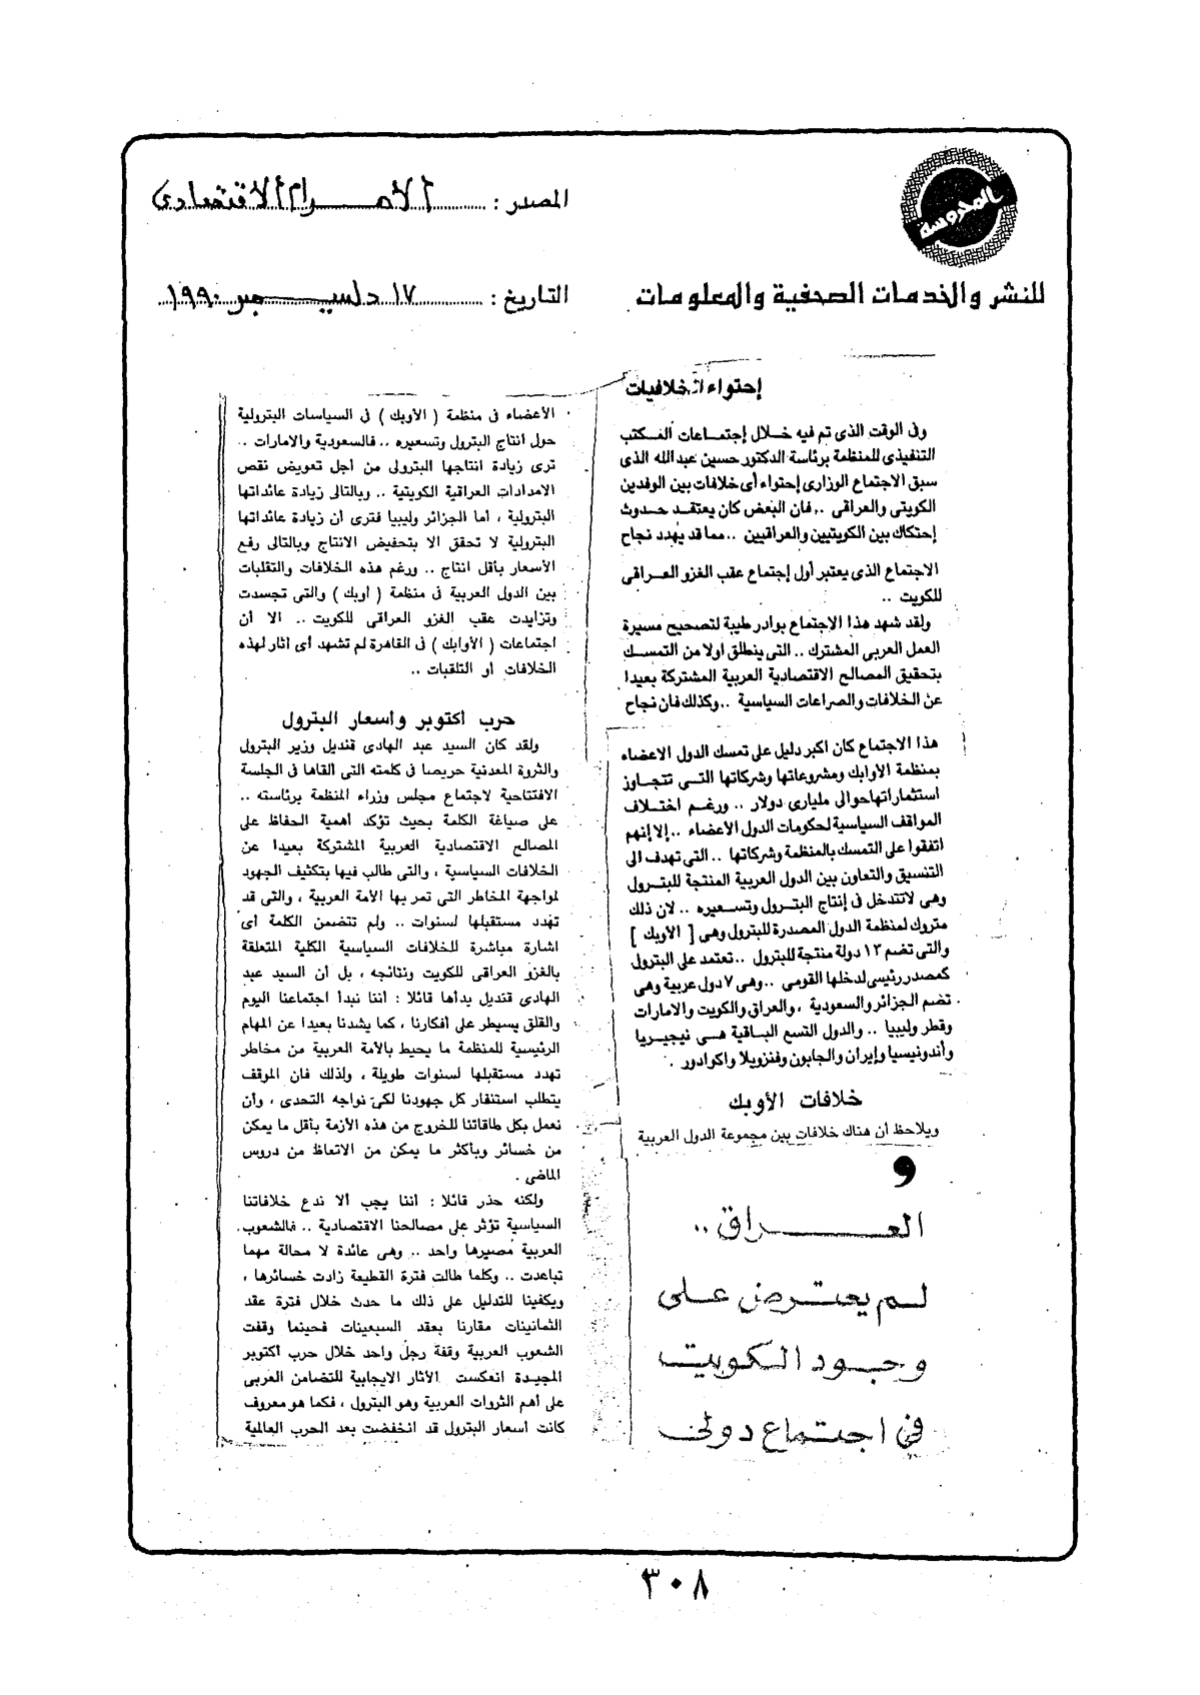 المحروسة
للنشر والخدمات الصحفية والمعلومات
المصدر : الأهرام الاقتصادى
التاريخ : ١٧ ديسمبر ١٩٩٠
إحتواء الخلافيات
وفى الوقت الذى تم فيه خلال إجتماعات المكتب
التنفيذى للمنظمة برئاسة الدكتور حسين عبد الله الذى
سبق الاجتماع الوزارى إحتواء أى خلافات بين الوفدين
الكويتى والعراقى .. فان البعض كان يعتقد حدوث
إحتكاك بين الكويتيين والعراقيين .. مما قد يهدد نجاح
الاجتماع الذى يعتبر أول إجتماع عقب الغزو العراقى
للكويت ..
ولقد شهد هذا الاجتماع بوادر طيبة لتصحيح مسيرة
العمل العربى المشترك .. التى ينطلق اولا من التمسك
بتحقيق المصالح الاقتصادية العربية المشتركة بعيدا
عن الخلافات والصراعات السياسية .. وكذلك فان نجاح
هذا الاجتماع كان اكبر دليل على تمسك الدول الاعضاء
بمنظمة الاوابك ومشروعاتها وشركاتها التى تتجاوز
استثماراتها حوالى مليارى دولار .. ورغم اختلاف
المواقف السياسية لحكومات الدول الاعضاء .. إلا إنهم
اتفقوا على التمسك بالمنظمة وشركاتها .. التى تهدف الى
التنسيق والتعاون بين الدول العربية المنتجة للبترول
وهى لاتتدخل فى إنتاج البترول وتسعيره .. لان ذلك
متروك لمنظمة الدول المصدرة للبترول وهى [ الاوبك ]
والتى تضم ١٣ دولة منتجة للبترول .. تعتمد على البترول
كمصدر رئيسى لدخلها القومى .. وهى ٧ دول عربية وهى
تضم الجزائر والسعودية ، والعراق والكويت والامارات
وقطر وليبيا .. والدول التسع الباقية هى نيجيريا
وأندونيسيا وإيران والجابون وفنزويلا واكوادور .
خلافات الأوبك
ويلاحظ أن هناك خلافات بين مجموعة الدول العربية
و
العراق ..
لم يعترض على
وجود الكويت
فى اجتماع دولى
الأعضاء فى منظمة ( الأوبك ) فى السياسات البترولية
حول انتاج البترول وتسعيره .. فالسعودية والامارات ..
ترى زيادة انتاجها البترولى من أجل تعويض نقص
الامدادات العراقية الكويتية .. وبالتالى زيادة عائداتها
البترولية ، أما الجزائر وليبيا فترى أن زيادة عائداتها
البترولية لا تحقق الا بتحفيض الانتاج وبالتالى رفع
الأسعار بأقل انتاج .. ورغم هذه الخلافات والتقلبات
بين الدول العربية فى منظمة ( أوبك ) والتى تجسدت
وتزايدت عقب الغزو العراقى للكويت .. الا أن
اجتماعات ( الأوابك ) فى القاهرة لم تشهد أى اثار لهذه
الخلافات أو التلقبات ..
حرب اكتوبر واسعار البترول
ولقد كان السيد عبد الهادى قنديل وزير البترول
والثروة المعدنية حريصا فى كلمته التى القاها فى الجلسة
الافتتاحية لاجتماع مجلس وزراء المنظمة برئاسته ..
على صياغة الكلمة بحيث تؤكد أهمية الحفاظ على
المصالح الاقتصادية العربية المشتركة بعيدا عن
الخلافات السياسية ، والتى طالب فيها بتكثيف الجهود
لمواجهة المخاطر التى تمر بها الأمة العربية ، والتى قد
تهدد مستقبلها لسنوات .. ولم تتضمن الكلمة أى
اشارة مباشرة للخلافات السياسية الكلية المتعلقة
بالغزو العراقى للكويت ونتائجه ، بل أن السيد عبد
الهادى قنديل بدأها قائلا : أننا نبدأ اجتماعنا اليوم
والقلق يسيطر على أفكارنا ، كما يشدنا بعيدا عن المهام
الرئيسية للمنظمة ما يحيط بالأمة العربية من مخاطر
تهدد مستقبلها لسنوات طويلة ، ولذلك فان الموقف
يتطلب استنفار كل جهودنا لكى نواجه التحدى ، وأن
نعمل بكل طاقاتنا للخروج من هذه الأزمة بأقل ما يمكن
من خسائر وبأكثر ما يمكن من الاتعاظ من دروس
الماضى .
ولكنه حذر قائلا : اننا يجب ألا ندع خلافاتنا
السياسية تؤثر على مصالحنا الاقتصادية .. فالشعوب
العربية مصيرها واحد .. وهى عائدة لا محالة مهما
تباعدت .. وكلما طالت فترة القطيعة زادت خسائرها ،
ويكفينا للتدليل على ذلك ما حدث خلال فترة عقد
الثمانينات مقارنا بعقد السبعينات فحينما وقفت
الشعوب العربية وقفة رجل واحد خلال حرب اكتوبر
المجيدة انعكست الأثار الايجابية للتضامن العربى
على أهم الثروات العربية وهو البترول ، فكما هو معروف
كانت اسعار البترول قد انخفضت بعد الحرب العالمية
٣٠٨